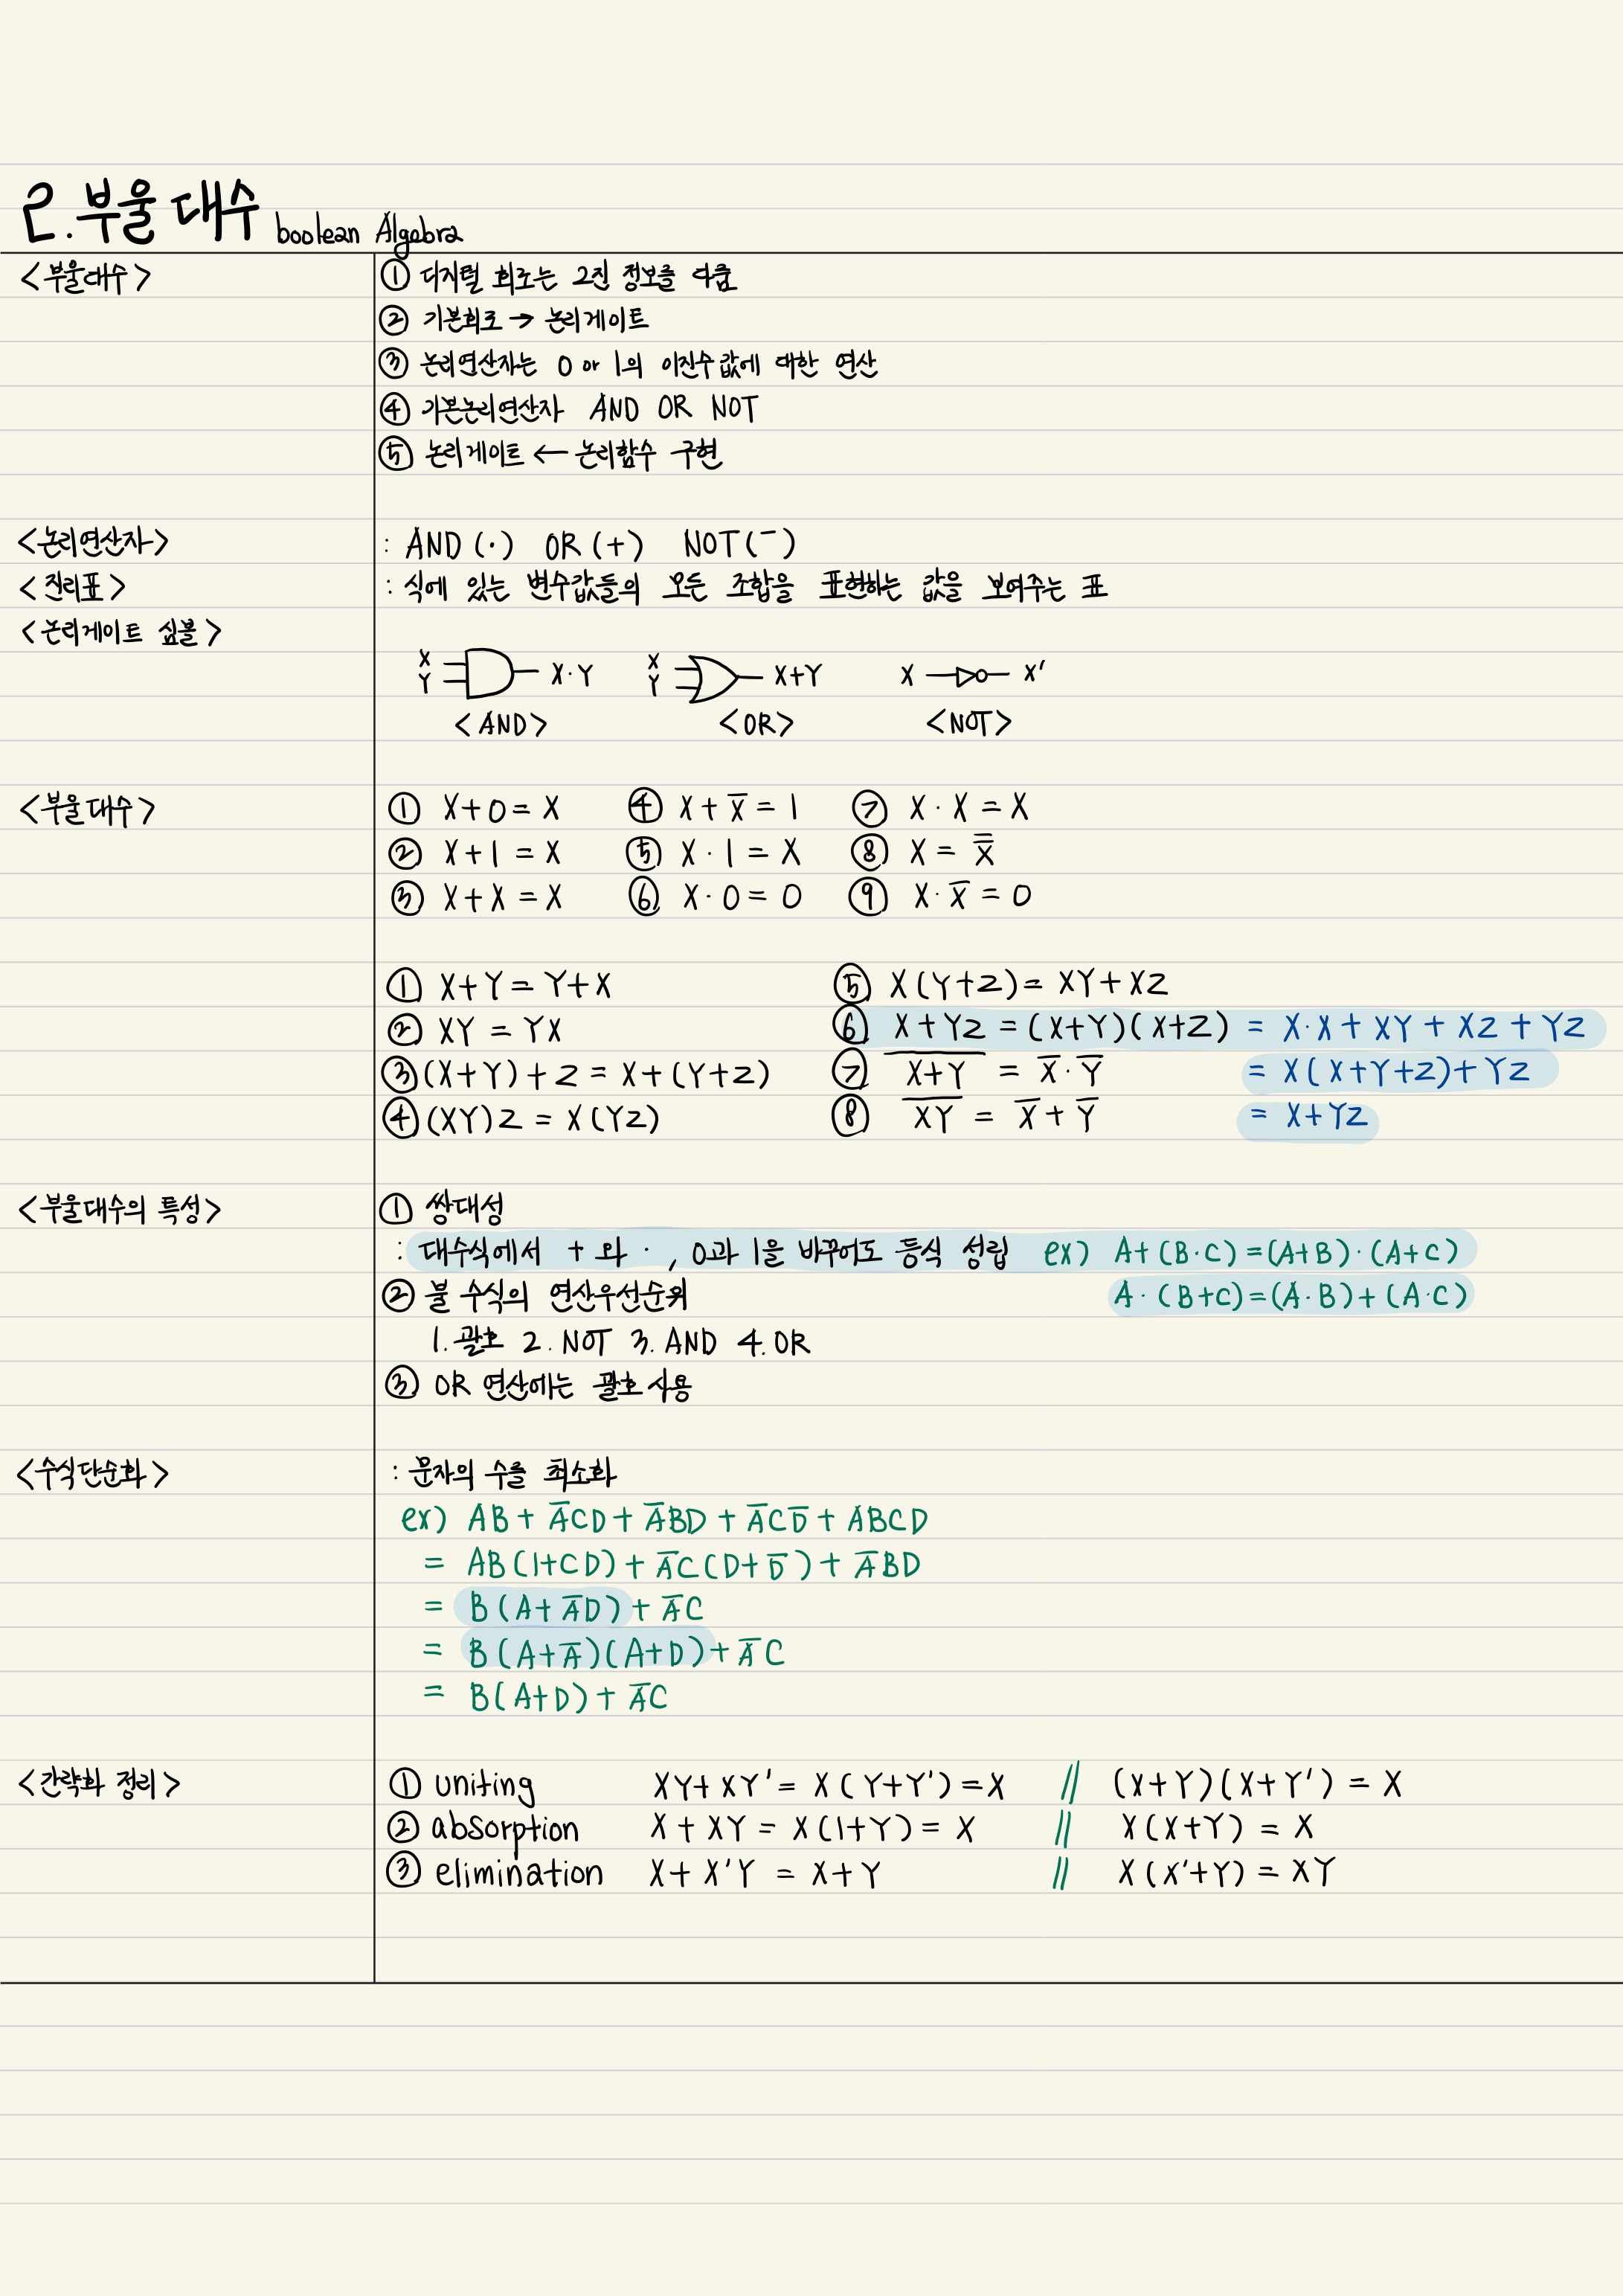 2. 부울 대수 boolean Algebra
<부울대수> ① 디지털 회로는 2진 정보를 다룸
② 기본회로 → 논리게이트
③ 논리연산자는 0 or 1의 이진수값에 대한 연산
④ 기본논리연산자 AND OR NOT
⑤ 논리게이트 ← 논리함수 구현
<논리연산자> : AND (·) OR (+) NOT (‾)
<진리표> : 식에 있는 변수값들의 모든 조합을 표현하는 값을 보여주는 표
<논리게이트 심볼>
X Y X·Y X Y X+Y X X'
<AND> <OR> <NOT>
<부울 대수> ① X+0=X ④ X+X̅=1 ⑦ X·X=X
② X+1=X ⑤ X·1=X ⑧ X=X̿
③ X+X=X ⑥ X·0=0 ⑨ X·X̅=0
① X+Y=Y+X ⑤ X(Y+Z)=XY+XZ
② XY=YX ⑥ X+YZ=(X+Y)(X+Z) = X·X+XY+XZ+YZ
③ (X+Y)+Z=X+(Y+Z) ⑦ X̅+̅Y̅ = X̅·Y̅ = X(X+Y+Z)+YZ
④ (XY)Z=X(YZ) ⑧ X̅Y̅ = X̅+Y̅ = X+YZ
<부울대수의 특성> ① 쌍대성
: 대수식에서 + 와 · , 0과 1을 바꾸어도 등식 성립 ex) A+(B·C)=(A+B)·(A+C)
② 불 수식의 연산우선순위 A·(B+C)=(A·B)+(A·C)
1. 괄호 2. NOT 3. AND 4. OR
③ OR 연산에는 괄호 사용
<수식단순화> : 문자의 수를 최소화
ex) AB+A̅CD+A̅BD+A̅CD̅+ABCD
= AB(1+CD)+A̅C(D+D̅)+A̅BD
= B(A+A̅D)+A̅C
= B(A+A̅)(A+D)+A̅C
= B(A+D)+A̅C
<간략화 정리> ① uniting XY+XY'=X(Y+Y')=X // (X+Y)(X+Y')=X
② absorption X+XY=X(1+Y)=X // X(X+Y)=X
③ elimination X+X'Y=X+Y // X(X'+Y)=XY